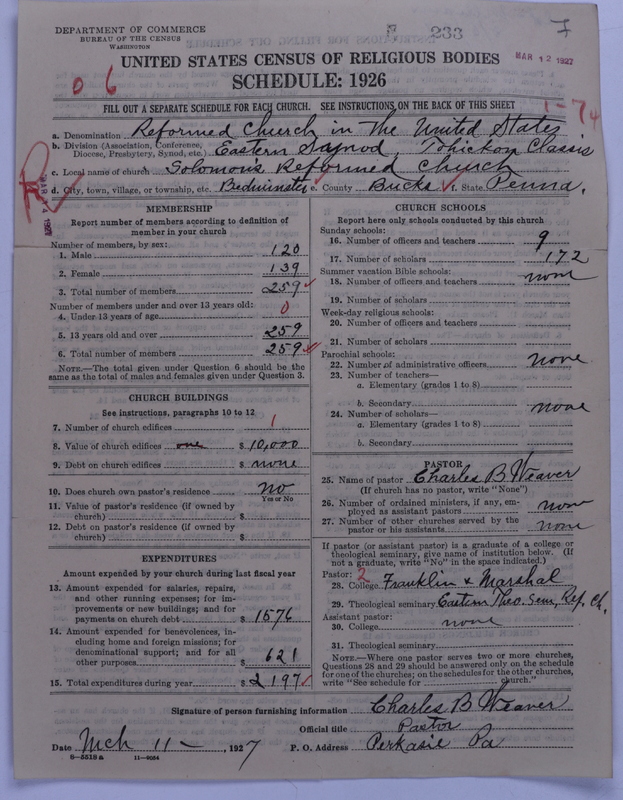 DEPARTMENT OF COMMERCE
BUREAU OF THE CENSUS
WASHINGTON
233
7
MAR 12 1927
UNITED STATES CENSUS OF RELIGIOUS BODIES
SCHEDULE: 1926
0 6
FILL OUT A SEPARATE SCHEDULE FOR EACH CHURCH. SEE INSTRUCTIONS ON THE BACK OF THIS SHEET
1-74
a. Denomination Reformed Church in the United States
b. Division (Association, Conference, Diocese, Presbytery, Synod, etc.) Eastern Synod, Tohickon Classis
c. Local name of church Solomon's Reformed Church
d. City, town, village, or township, etc. Bedminster e. County Bucks f. State Penna.
MEMBERSHIP
Report number of members according to definition of
member in your church
Number of members, by sex:
1. Male 120
2. Female 139
3. Total number of members 259
Number of members under and over 13 years old:
4. Under 13 years of age 0
5. 13 years old and over 259
6. Total number of members 259
NOTE.—The total given under Question 6 should be
same as the total of males and females given under Question 3.
CHURCH BUILDINGS
See instructions, paragraphs 10 to 12
7. Number of church edifices 1
8. Value of church edifices one $ 10,000
9. Debt on church edifices $ none
10. Does church own pastor's residence No
Yes or No
11. Value of pastor's residence (if owned by
church) $
12. Debt on pastor's residence (if owned by
church) $
EXPENDITURES
Amount expended by your church during last fiscal year
13. Amount expended for salaries, repairs,
and other running expenses; for im-
provements or new buildings; and for
payments on church debt $ 1576
14. Amount expended for benevolences, in-
cluding home and foreign missions; for
denominational support; and for all
other purposes 621
15. Total expenditures during year $ 2197
CHURCH SCHOOLS
Report here only schools conducted by this church
Sunday schools:
16. Number of officers and teachers 9
17. Number of scholars 172
Summer vacation Bible schools:
18. Number of officers and teachers none
19. Number of scholars
Week-day religious schools:
20. Number of officers and teachers
21. Number of scholars
Parochial schools:
22. Number of administrative officers none
23. Number of teachers—
a. Elementary (grades 1 to 8)
b. Secondary none
24. Number of scholars—
a. Elementary (grades 1 to 8)
b. Secondary
PASTOR
25. Name of pastor Charles B Weaver
(If church has no pastor, write "None")
26. Number of ordained ministers, if any, em-
ployed as assistant pastors none
27. Number of other churches served by the
pastor or his assistants none
If pastor (or assistant pastor) is a graduate of a college or
theological seminary, give name of institution below. (If
not a graduate, write "No" in the space indicated.)
Pastor: 2
28. College Franklin & Marshal
29. Theological seminary Eastern Theo. Sem, Ref. Ch.
Assistant pastor:
30. College none
31. Theological seminary
NOTE.—Where one pastor serves two or more churches,
Questions 28 and 29 should be answered only on the schedule
for one of the churches; on the schedules for the other churches,
write "See schedule for church."
Signature of person furnishing information Charles B Weaver
Official title Pastor
Date Mch 11 — , 1927 P. O. Address Perkasie Pa
8-5518a 11-9054